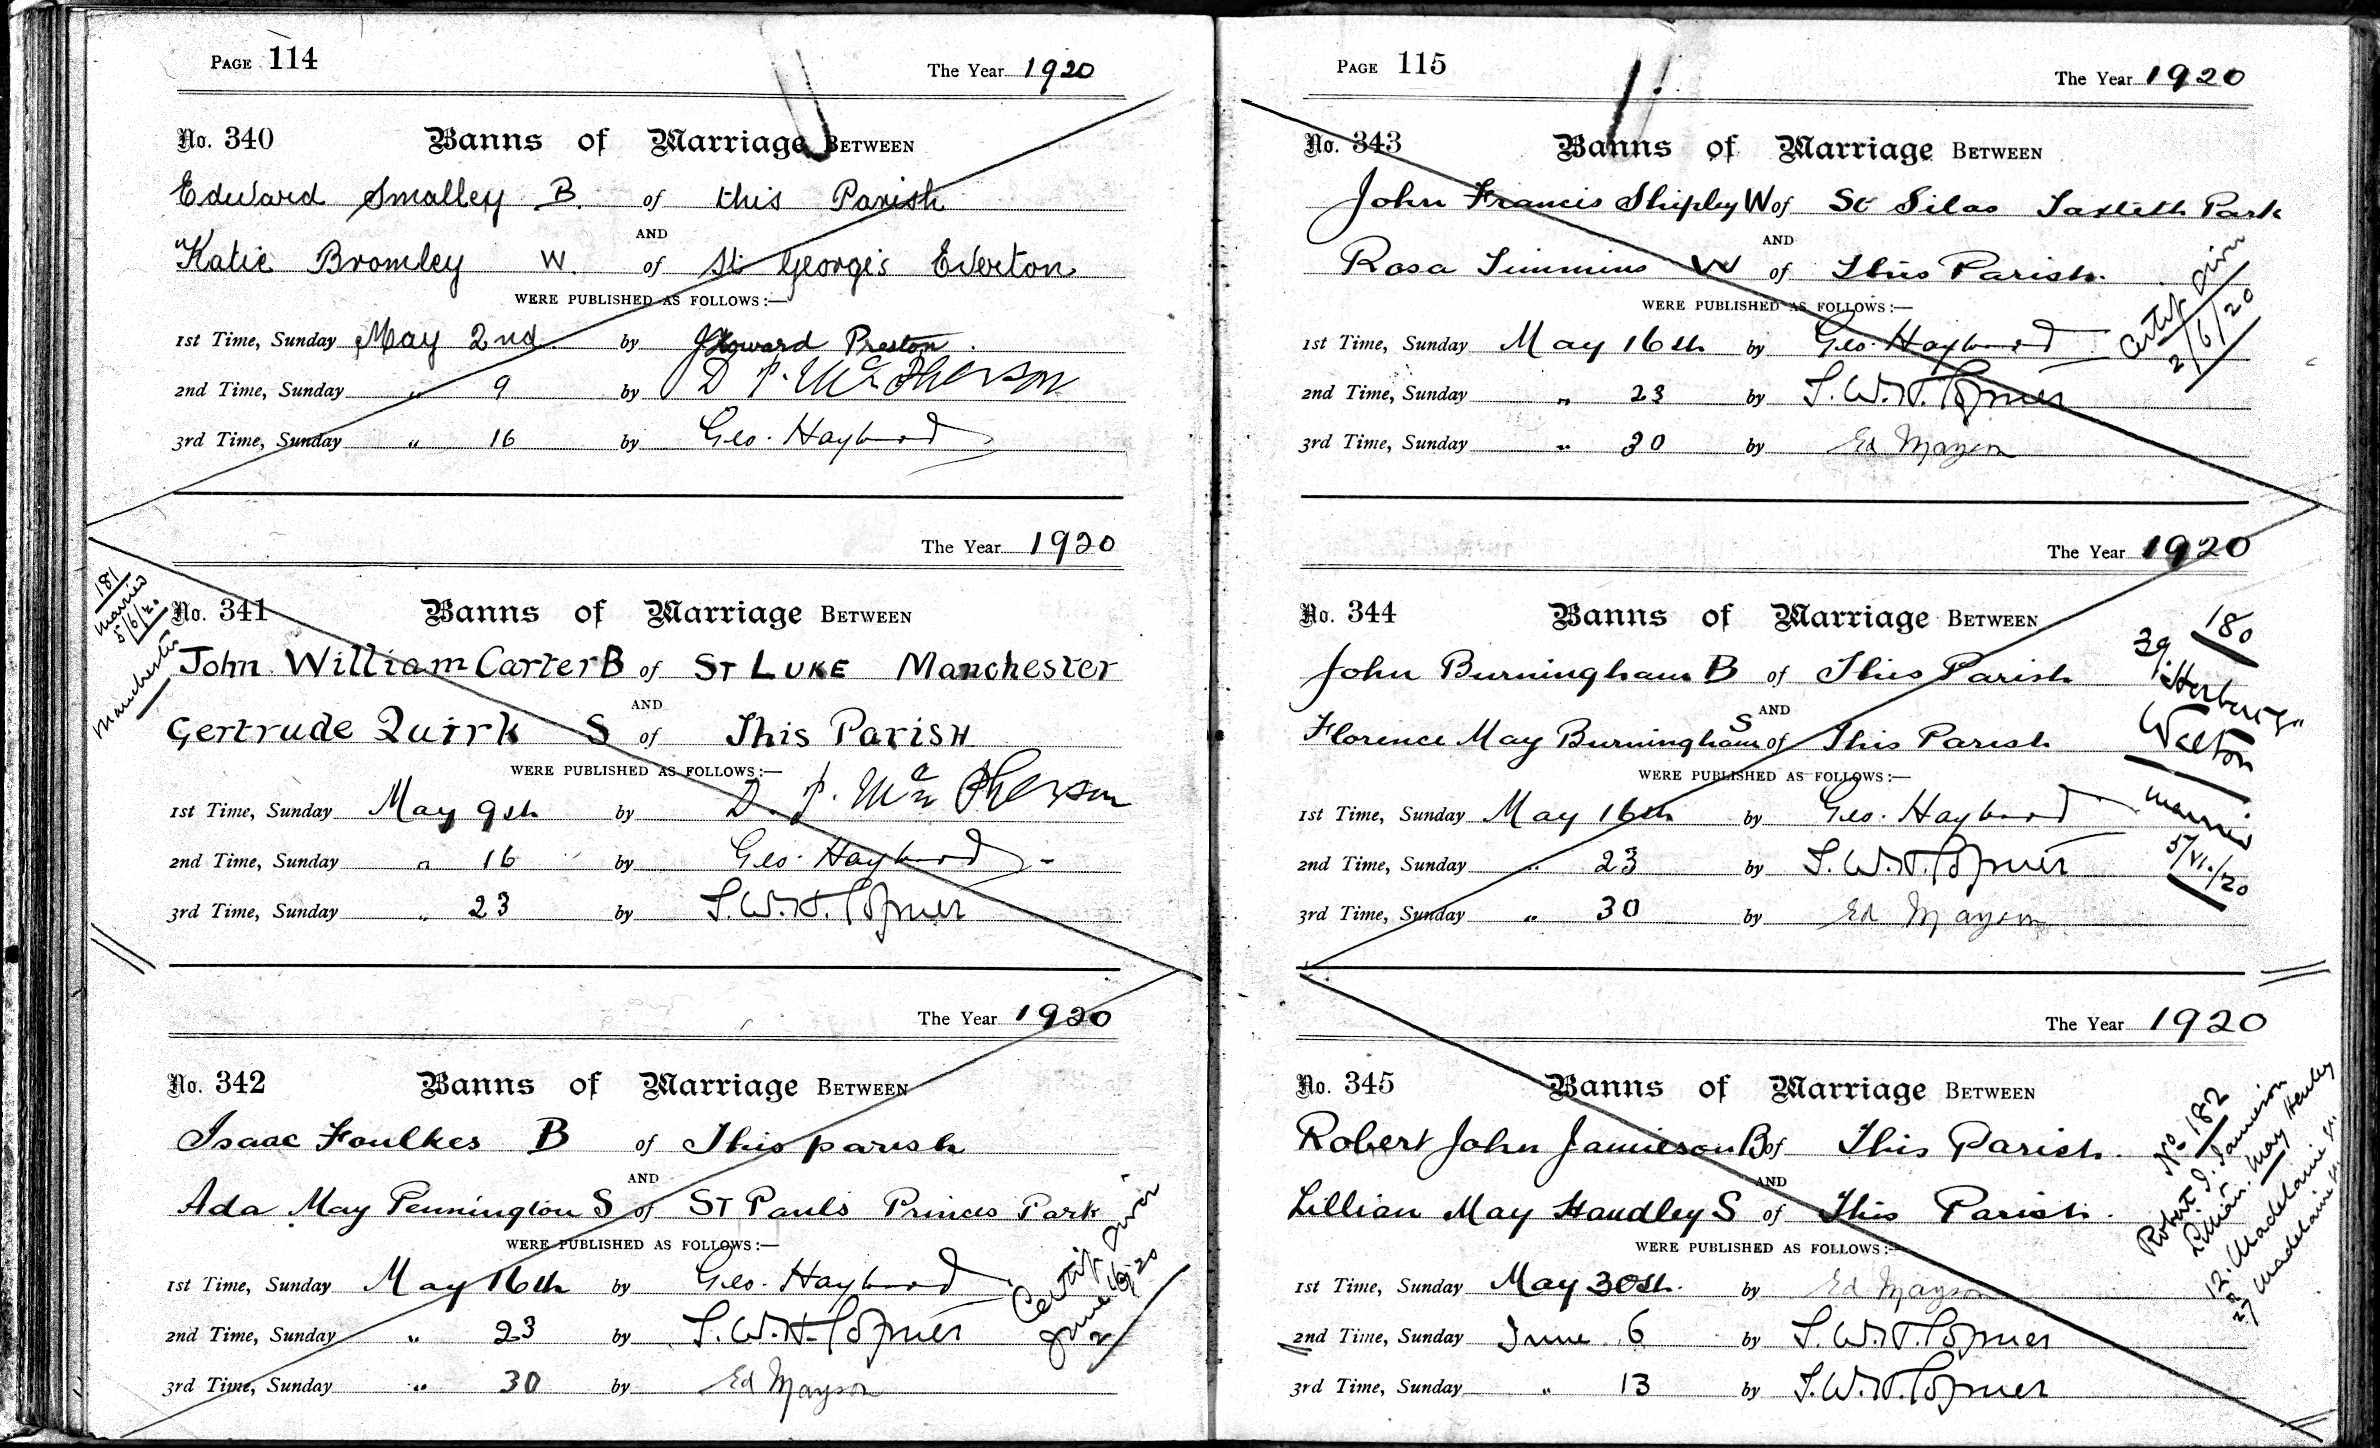 PAGE 114
The Year 1920
No. 340 Banns of Marriage BETWEEN
Edward Smalley B. of this Parish
AND
Katie Bromley W. of St George's Everton
WERE PUBLISHED AS FOLLOWS:—
1st Time, Sunday May 2nd by Howard Preston
2nd Time, Sunday " 9 by D P. McPherson
3rd Time, Sunday " 16 by Geo. Hayward
The Year 1920
181
Married
5/6/20
Manchester
No. 341 Banns of Marriage BETWEEN
John William Carter B of ST LUKE Manchester
AND
Gertrude Quirk S of This Parish
WERE PUBLISHED AS FOLLOWS:—
1st Time, Sunday May 9th by D. P. McPherson
2nd Time, Sunday " 16 by Geo. Hayward
3rd Time, Sunday " 23 by
The Year 1920
No. 342 Banns of Marriage BETWEEN
Isaac Foulkes B of This parish
AND
Ada May Pennington S of ST Pauls Princes Park
WERE PUBLISHED AS FOLLOWS:—
1st Time, Sunday May 16th by Geo. Hayward
2nd Time, Sunday " 23 by
3rd Time, Sunday " 30 by Ed Mayson
Certif given
June
PAGE 115
The Year 1920
No. 343 Banns of Marriage BETWEEN
John Francis Shipley W of St Silas Toxteth Park
AND
Rosa Timmins W of This Parish.
WERE PUBLISHED AS FOLLOWS:—
1st Time, Sunday May 16th by Geo. Hayward
2nd Time, Sunday " 23 by
3rd Time, Sunday " 30 by Ed Mayson
Certif given
2/6/20
The Year 1920
No. 344 Banns of Marriage BETWEEN
John Burningham B of This Parish
AND
Florence May Burningham S of This Parish
WERE PUBLISHED AS FOLLOWS:—
1st Time, Sunday May 16th by Geo. Hayward
2nd Time, Sunday " 23 by
3rd Time, Sunday " 30 by Ed Mayson
180
39
Walton
married
5/VI./20
The Year 1920
No. 345 Banns of Marriage BETWEEN
Robert John Jamieson B of This Parish.
AND
Lillian May Handley S of This Parish.
WERE PUBLISHED AS FOLLOWS:—
1st Time, Sunday May 30th. by Ed Mayson
2nd Time, Sunday June 6 by
3rd Time, Sunday " 13 by
No 182
Robert J. Jamieson
Lillian May
12. Madelaine St
27 Madelaine St